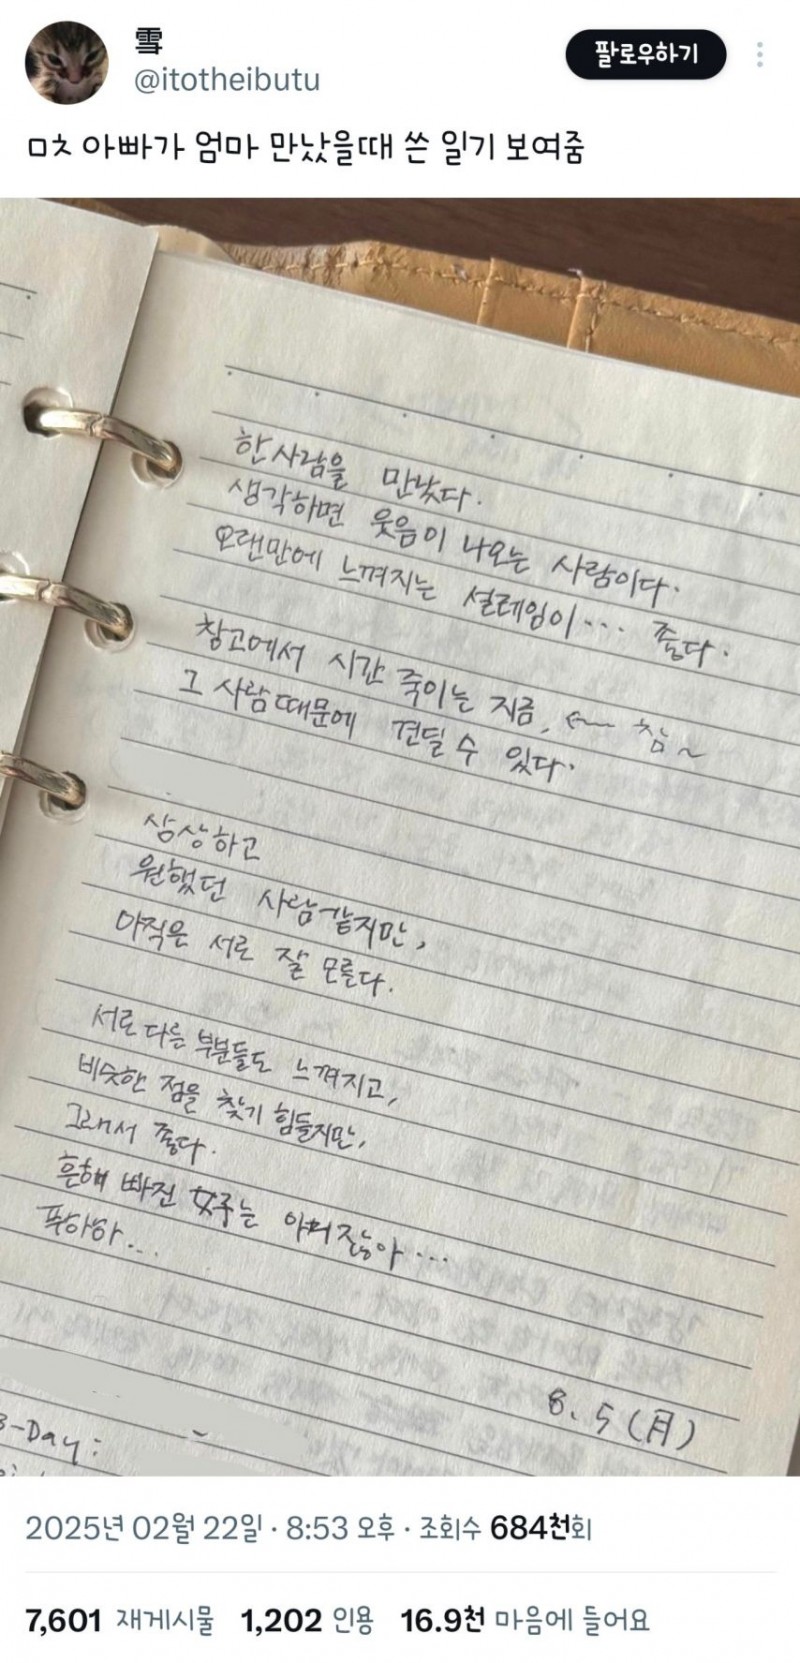 雪
@itotheibutu
팔로우하기
ㅁㅊ 아빠가 엄마 만났을때 쓴 일기 보여줌
한 사람을 만났다.
생각하면 웃음이 나오는 사람이다.
오랜만에 느껴지는 설레임이... 좋다.
창고에서 시간 죽이는 지금, ← 참~
그 사람때문에 견딜 수 있다.
상상하고
원했던 사람같지만,
아직은 서로 잘 모른다.
서로 다른 부분들도 느껴지고,
비슷한 점을 찾기 힘들지만,
그래서 좋다.
흔해 빠진 女주는
푸하하...
8. 5 (月)
B-Day:
2025년 02월 22일 · 8:53 오후 · 조회수 684천회
7,601 재게시물 1,202 인용 16.9천 마음에 들어요